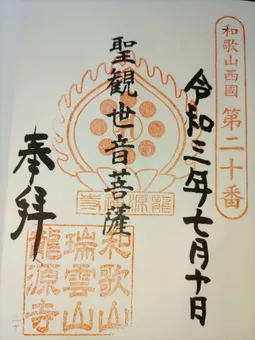 和歌山西國 第二十番
令和三年七月十日
聖観世音菩薩
奉拝
和歌山
瑞雲山
龍源寺